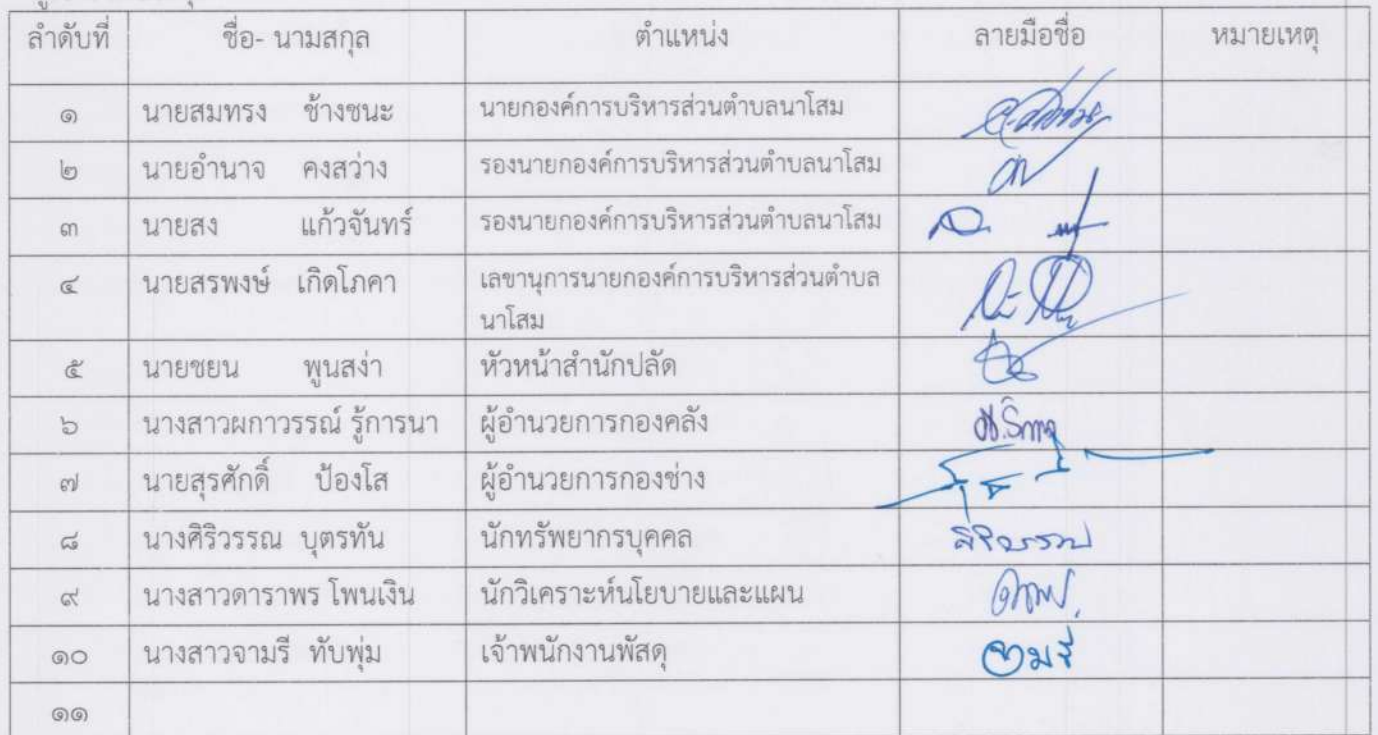 ลำดับที่ ชื่อ- นามสกุล ตำแหน่ง ลายมือชื่อ หมายเหตุ
๑ นายสมทรง ช้างชนะ นายกองค์การบริหารส่วนตำบลนาโสม
๒ นายอำนาจ คงสว่าง รองนายกองค์การบริหารส่วนตำบลนาโสม
๓ นายสง แก้วจันทร์ รองนายกองค์การบริหารส่วนตำบลนาโสม
๔ นายสรพงษ์ เกิดโภคา เลขานุการนายกองค์การบริหารส่วนตำบล
นาโสม
๕ นายชยน พูนสง่า หัวหน้าสำนักปลัด
๖ นางสาวผกาวรรณ์ รู้การนา ผู้อำนวยการกองคลัง
๗ นายสุรศักดิ์ ป้องโส ผู้อำนวยการกองช่าง
๘ นางศิริวรรณ บุตรทัน นักทรัพยากรบุคคล ศิริวรรณ
๙ นางสาวดาราพร โพนเงิน นักวิเคราะห์นโยบายและแผน
๑๐ นางสาวจามรี ทับพุ่ม เจ้าพนักงานพัสดุ จามรี
๑๑